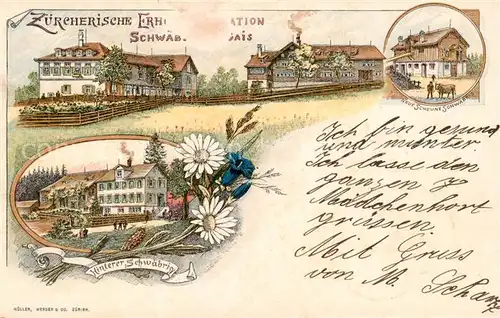 ZÜRCHERISCHE ERHO ATION
SCHWÄB. AIS
NEUE SCHEUNE SCHWÄB
Ich bin gesund
und munter
Ich lasse den
ganzen
Mädchenhort
grüssen.
Mit Gruss
von M. Schärz
Hinterer Schwäbrig
MÜLLER, WERDER & CO. ZÜRICH.